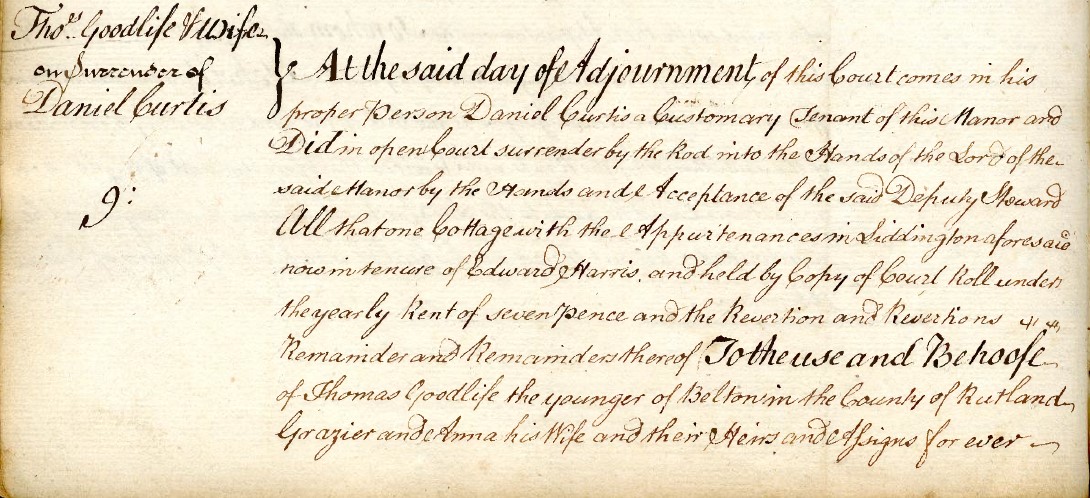 Thos. Goodlife & Wife
on Surrender of
Daniel Curtis
9:
At the said day of Adjournment of this Court comes in his
proper Person Daniel Curtis a Customary Tenant of this Manor and
Did in open Court surrender by the Rod into the Hands of the Lord of the
said Manor by the Hands and Acceptance of the said Deputy Steward
All that one Cottage with the Appurtenances in Liddington aforesaid
now in tenure of Edward Harris and held by Copy of Court Roll under
the yearly Rent of seven Pence and the Revertion and Revertions
Remainder and Remainders thereof To the use and Behoofe
of Thomas Goodlife the younger of Belton in the County of Rutland
Grazier and Anna his Wife and their Heirs and Assigns for ever